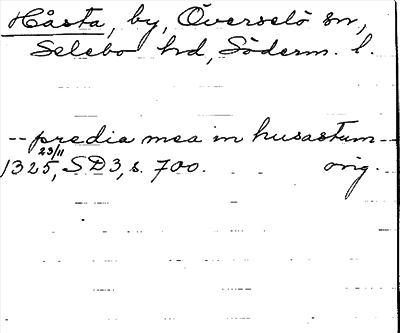 Håsta, by, Överselö sn,
Selebo hd, Söderm. l.
-- predia mea in husastum --
23/11
1325, SD3, s. 700. orig.